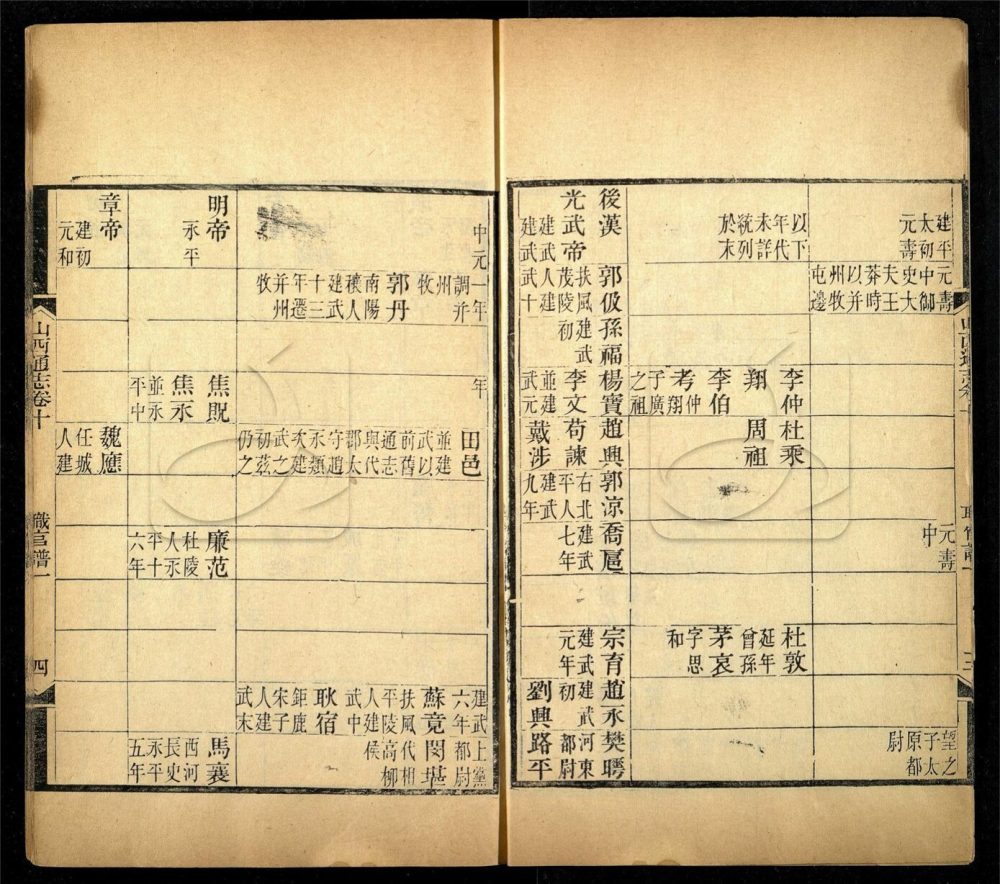 建平
太初
元壽
元壽中御史大夫王莽時以并州牧屯邊
元壽中
望之子太原都尉
以下年代未詳統列於末
李仲翔
李伯考
仲翔子廣之祖
杜乘
周祖
杜敦
延年曾孫
茅哀
字子思和
後漢
光武帝
建武
建武
郭伋
扶風茂陵人建武十
孫福
建武初
楊寶
李文
並建武元
趙興
荀諫
戴涉
郭涼
右北平人建武九年
喬扈
建武七年
宗育
建武元年
趙永
建武初
劉興
樊曄
河東都尉
路平
中元
一年調并州牧
郭丹
南陽穰人建武十三年遷并州牧
年
田邑
並建武以前舊通志與代郡太守趙永類次建武之初茲仍之
建武六年
蘇竟
扶風平陵人建武中
耿宿
鉅鹿宋子人建武末
上黨都尉
閔堪
代相高柳侯
明帝
永平
焦貺
焦永
並永平中
廉范
杜陵人永平十六年
馬襄
西河長史永平五年
章帝
建初
元和
魏應
任城人建
山西通志卷十
職官譜一
四